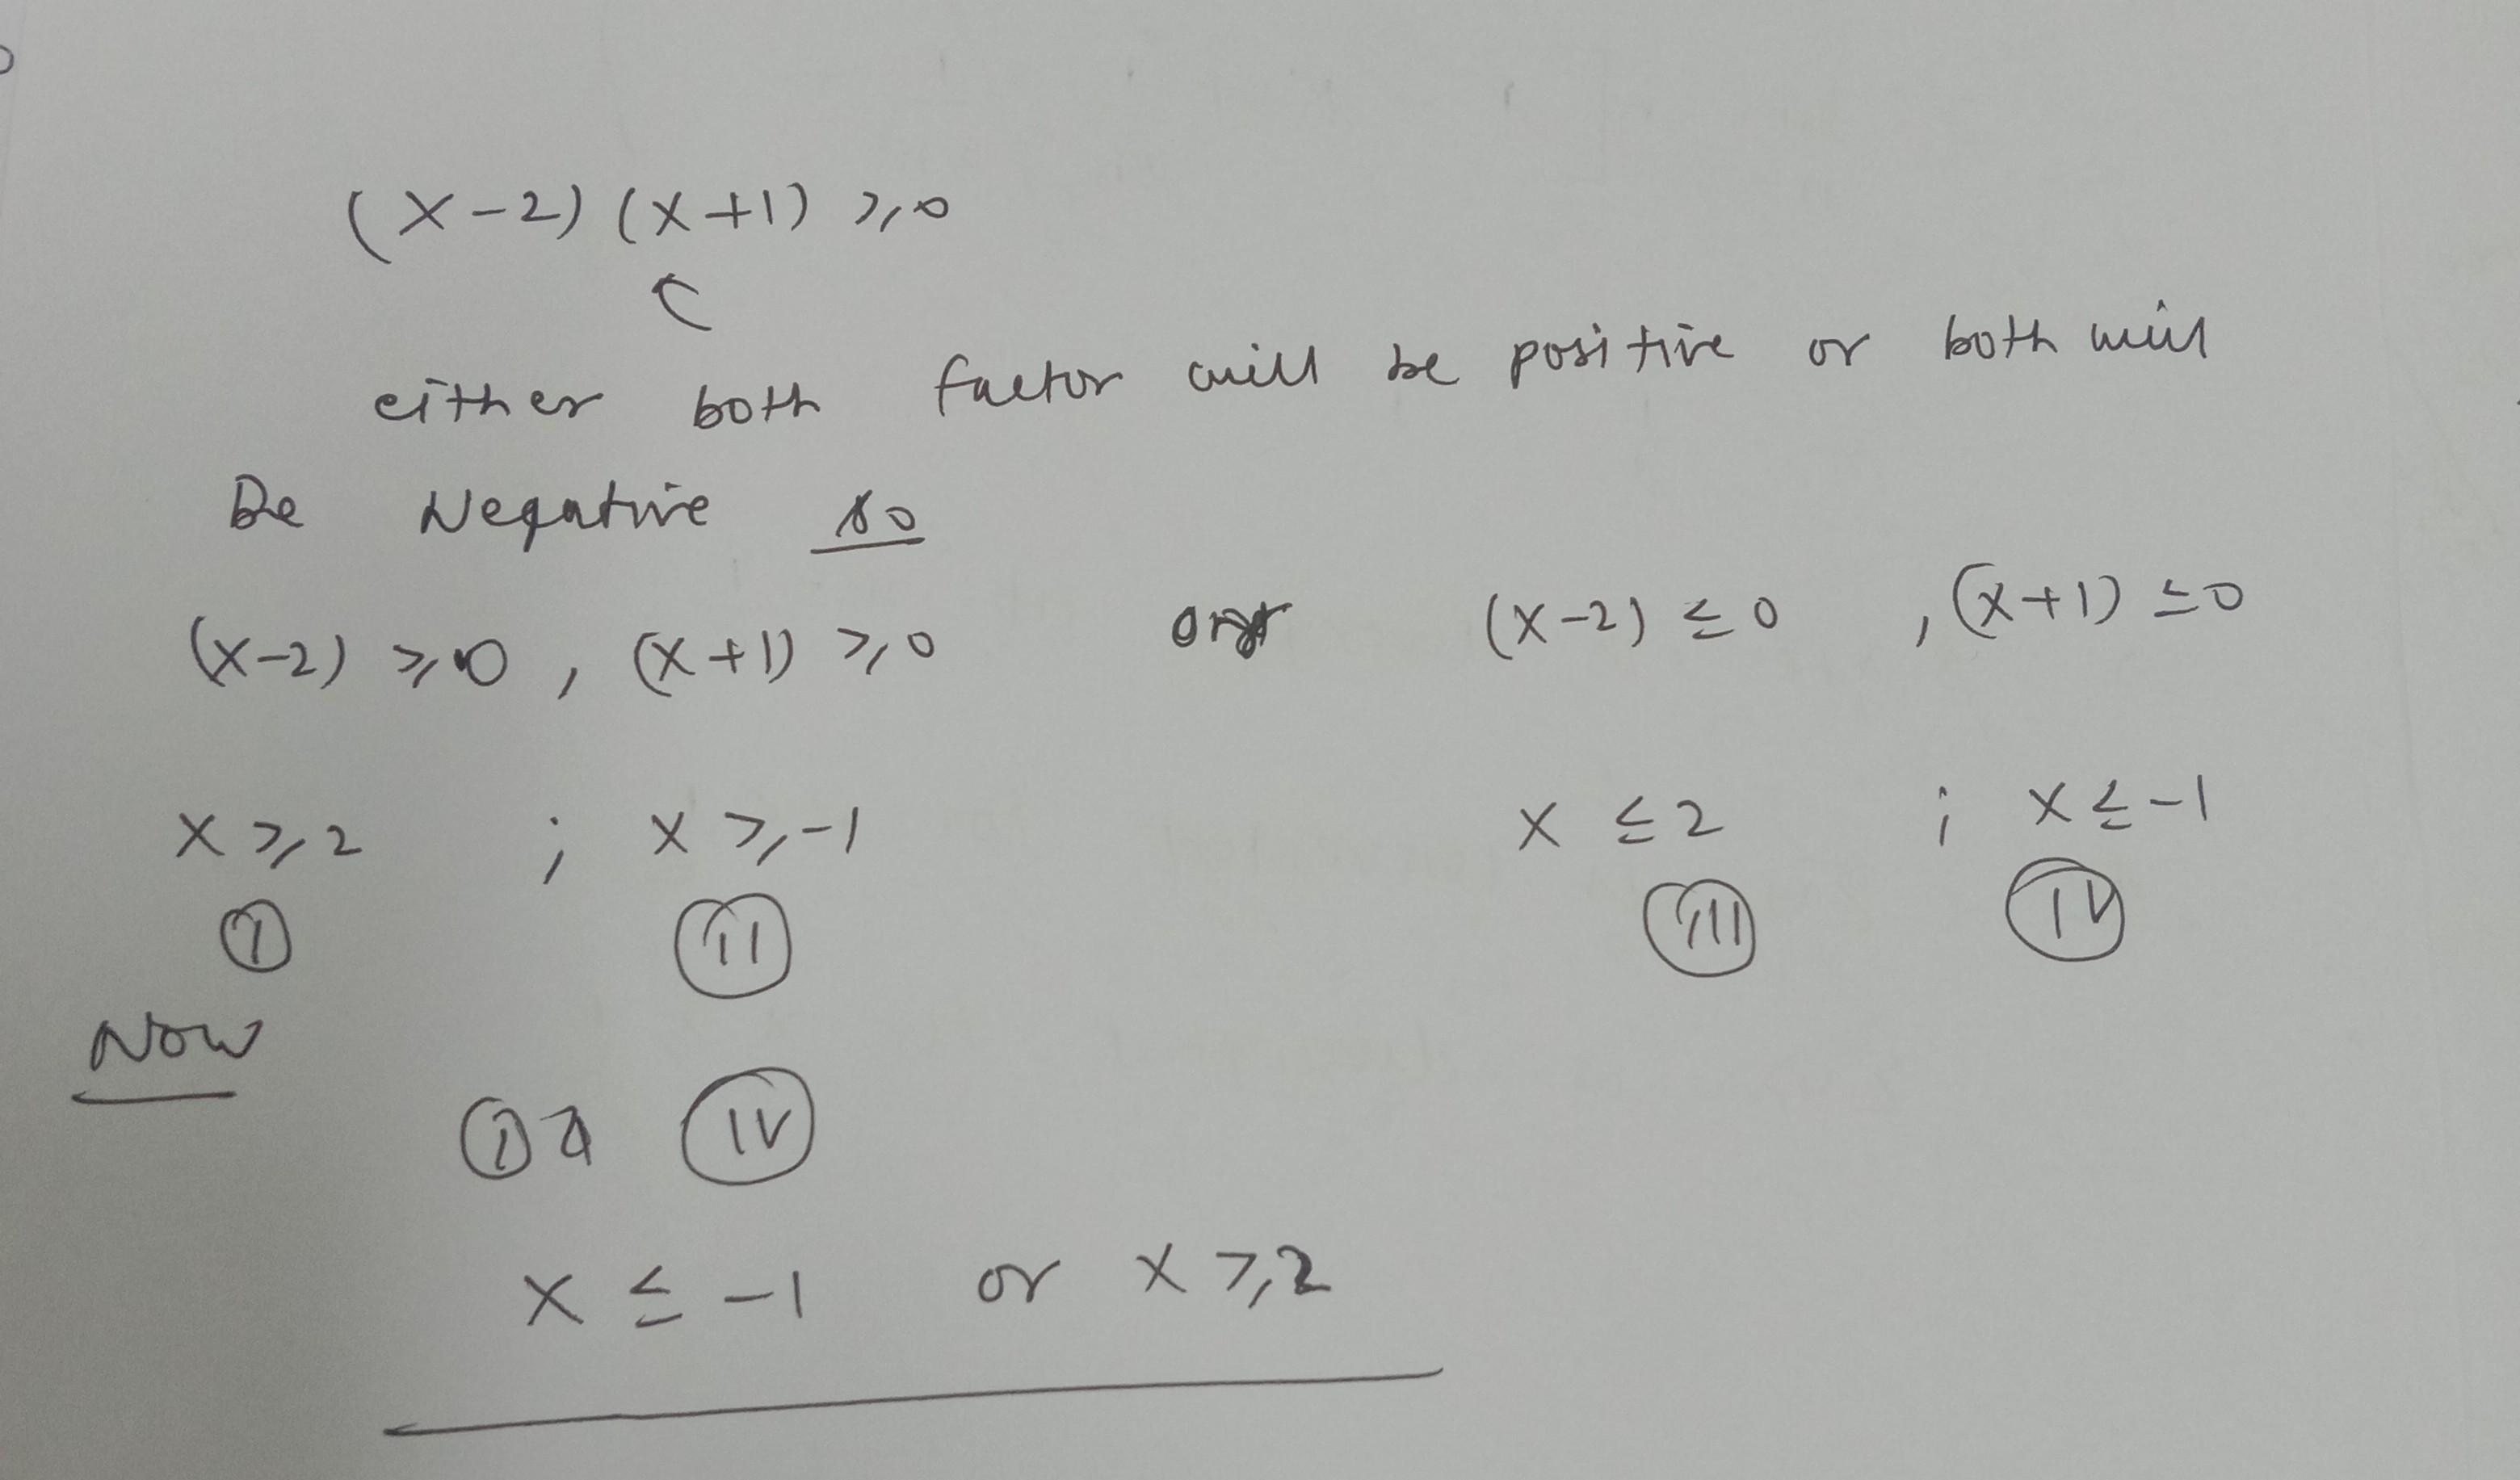 (x-2) (x+1) ≥ 0
either both factor will be positive or both will
Be Negative so
(x-2) ≥ 0 , (x+1) ≥ 0 or (x-2) ≤ 0 , (x+1) ≤ 0
x ≥ 2 ; x ≥ -1 x ≤ 2 ; x ≤ -1
(I) (II) (III) (IV)
Now
(I) & (IV)
x ≤ -1 or x ≥ 2